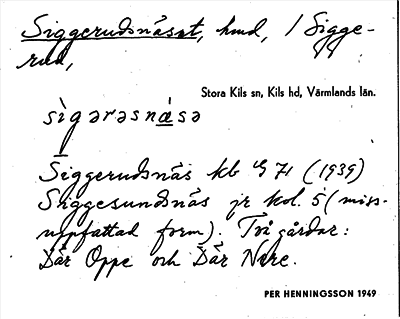 Siggerudsnäset, hmd, / Sigge-
rud,
Stora Kils sn, Kils hd, Värmlands län.
sìgərəsnä̀sə
Siggerudsnäs kb 71 (1939)
Siggesundsnäs jr kol. 5 (miss-
uppfattad form). Två gårdar:
Där Oppe och Där Nere.
PER HENNINGSSON 1949